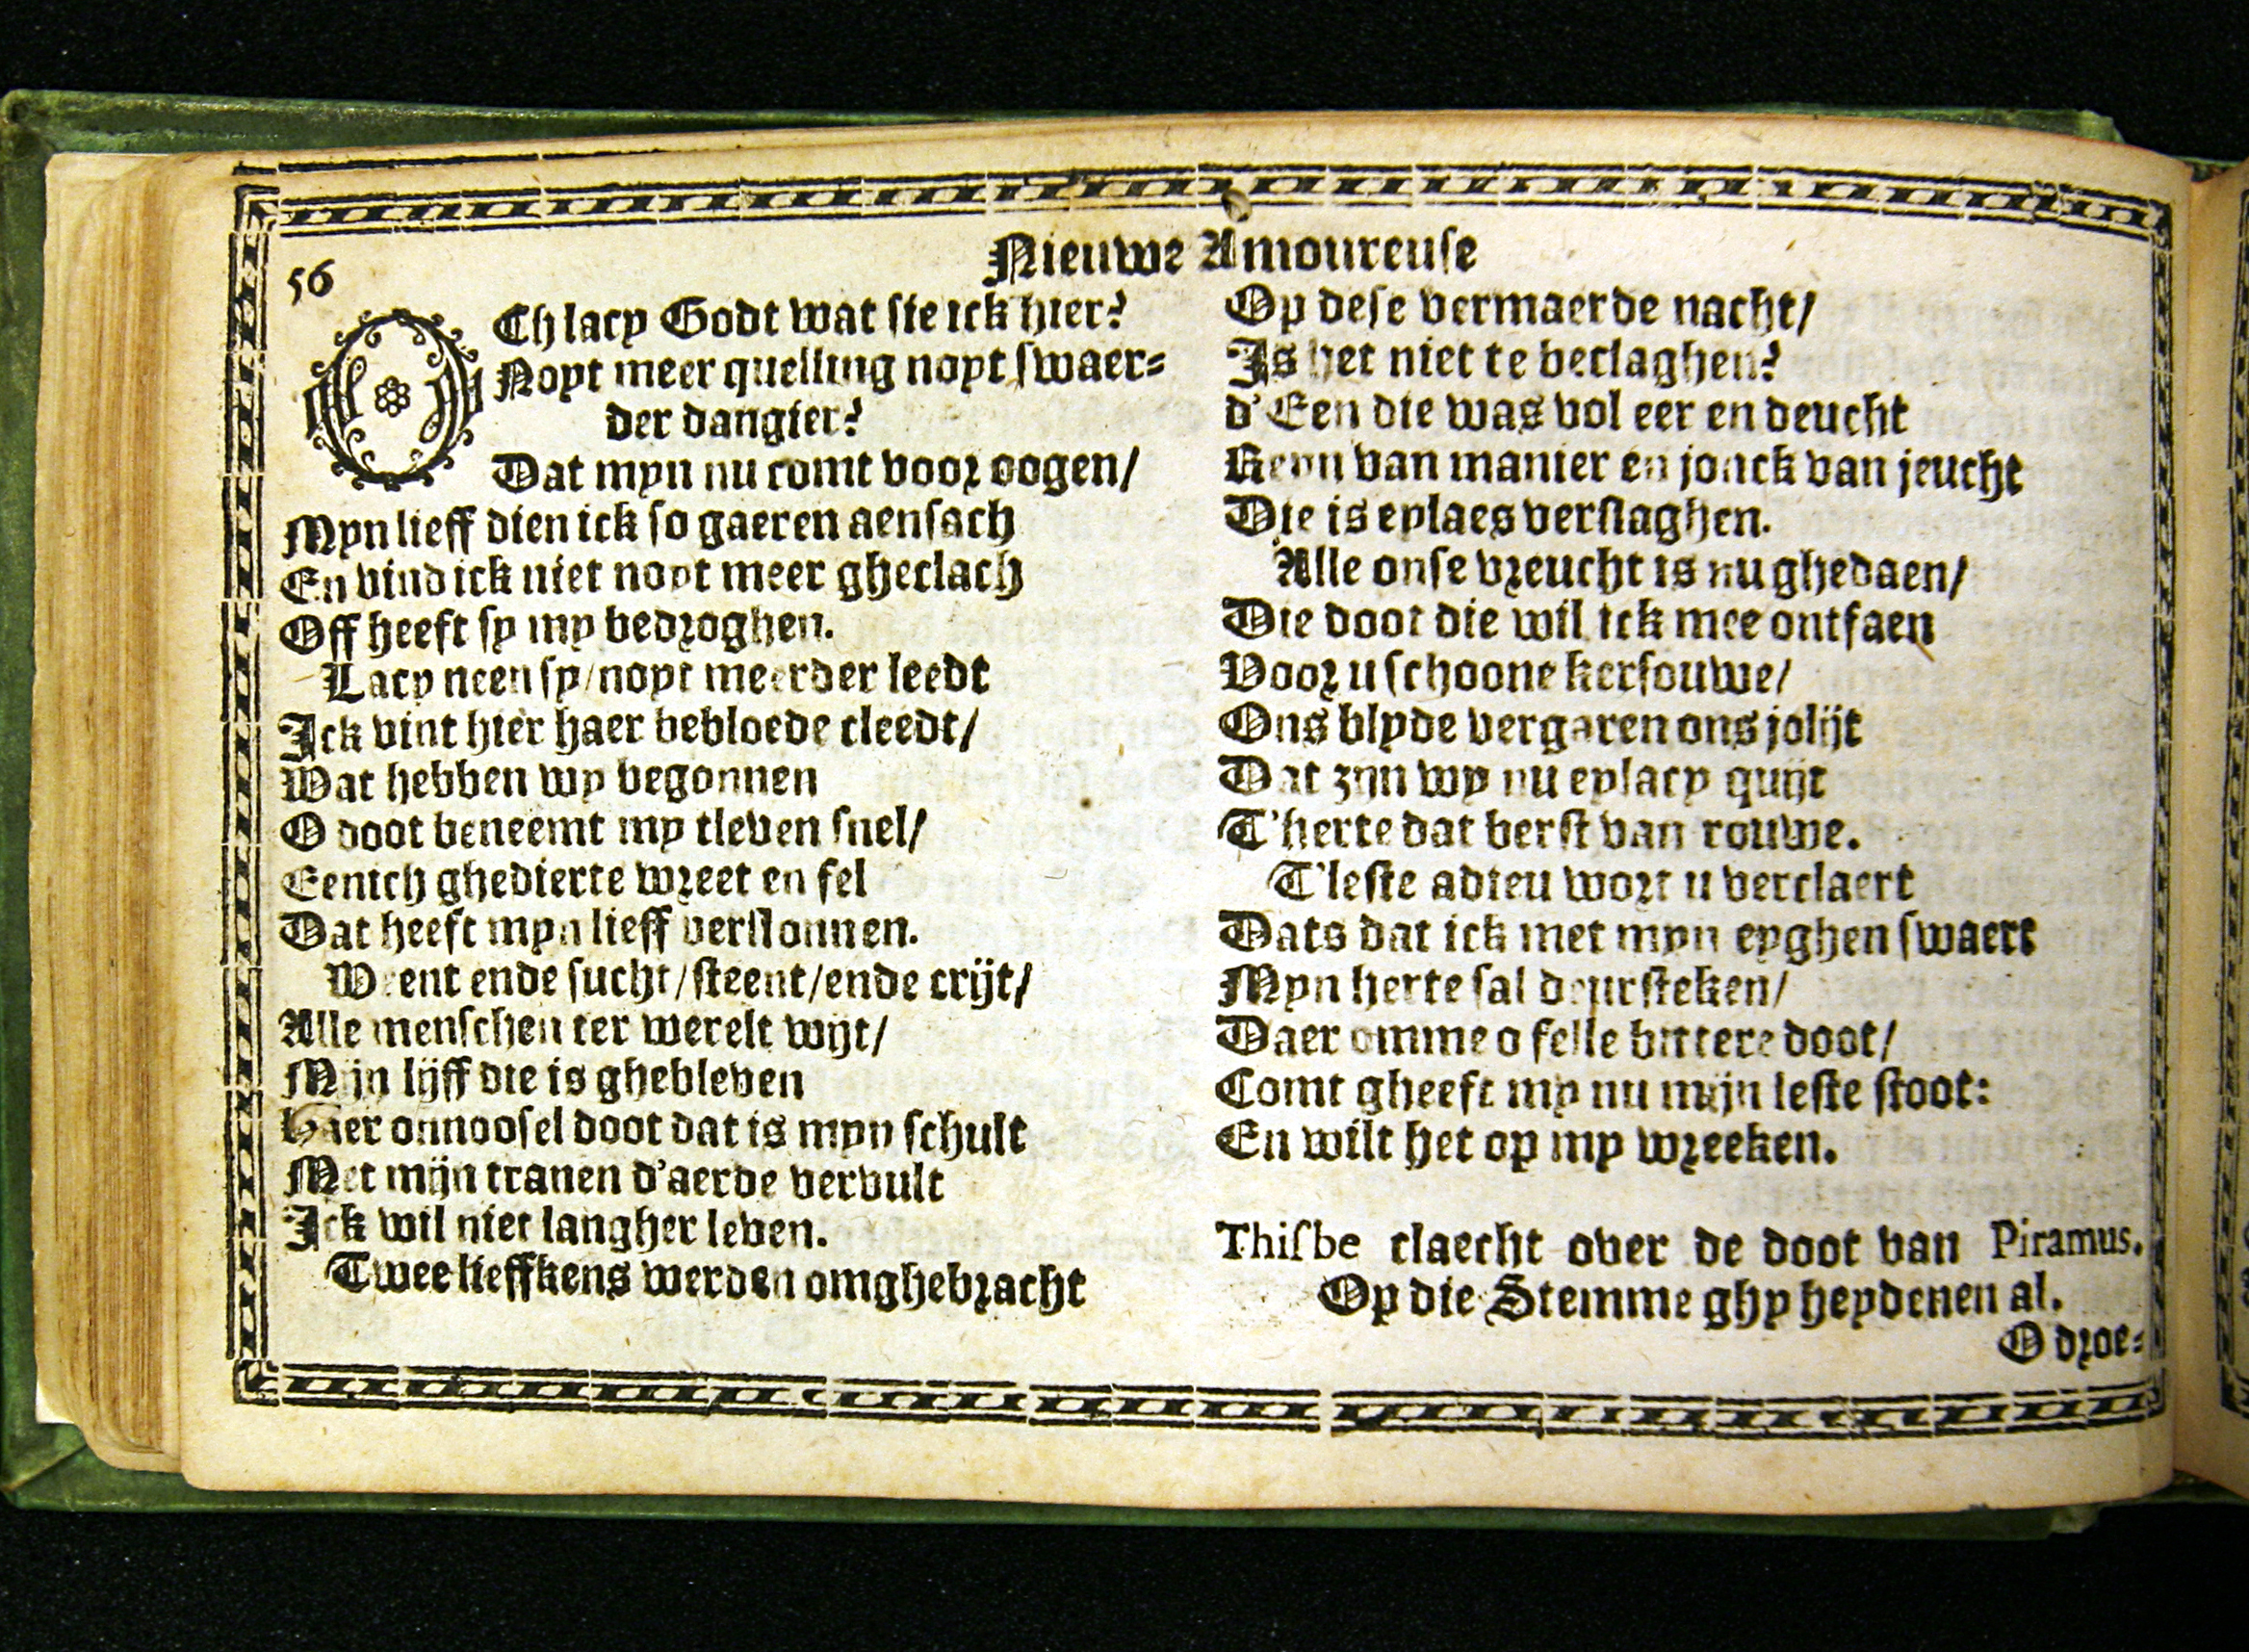 56
Nieuwe Amoureuse
OCh lacy Godt wat sie ick hier?
Noyt meer quelling noyt swaer=
der dangier?
Dat myn nu comt voor oogen/
Myn lieff dien ick so gaeren aensach
En vind ick niet noyt meer gheclach
Off heeft sy my bedroghen.
Lacy neen sy/noyt meerder leedt
Ick vint hier haer bebloede cleedt/
Wat hebben wy begonnen
O doot beneemt my tleven snel/
Eenich ghedierte wreet en fel
Dat heeft myn lieff verslonnen.
Weent ende sucht/steent/ende crijt/
Alle menschen ter werelt wijt/
Mijn lijff die is ghebleven
Haer onnoosel doot dat is myn schult
Met mijn tranen d'aerde vervult
Ick wil niet langher leven.
Twee lieffkens werden omghebracht
Op dese vermaerde nacht/
Is het niet te beclaghen?
d'Een die was vol eer en deucht
Reyn van manier en jonck van jeucht
Die is eylaes verslaghen.
Alle onse vreucht is nu ghedaen/
Die doot die wil ick mee ontfaen
Voor u schoone kersouwe/
Ons blyde vergaren ons jolijt
Dat zijn wy nu eylacy quijt
T'herte dat berst van rouwe.
T'leste adieu wort u verclaert
Dats dat ick met myn eyghen swaert
Myn herte sal deursteken/
Daer omme o felle bittere doot/
Comt gheeft my nu mijn leste stoot:
En wilt het op my wreeken.
Thisbe claecht over de doot van Piramus.
Op die Stemme ghy heydenen al.
O droe=